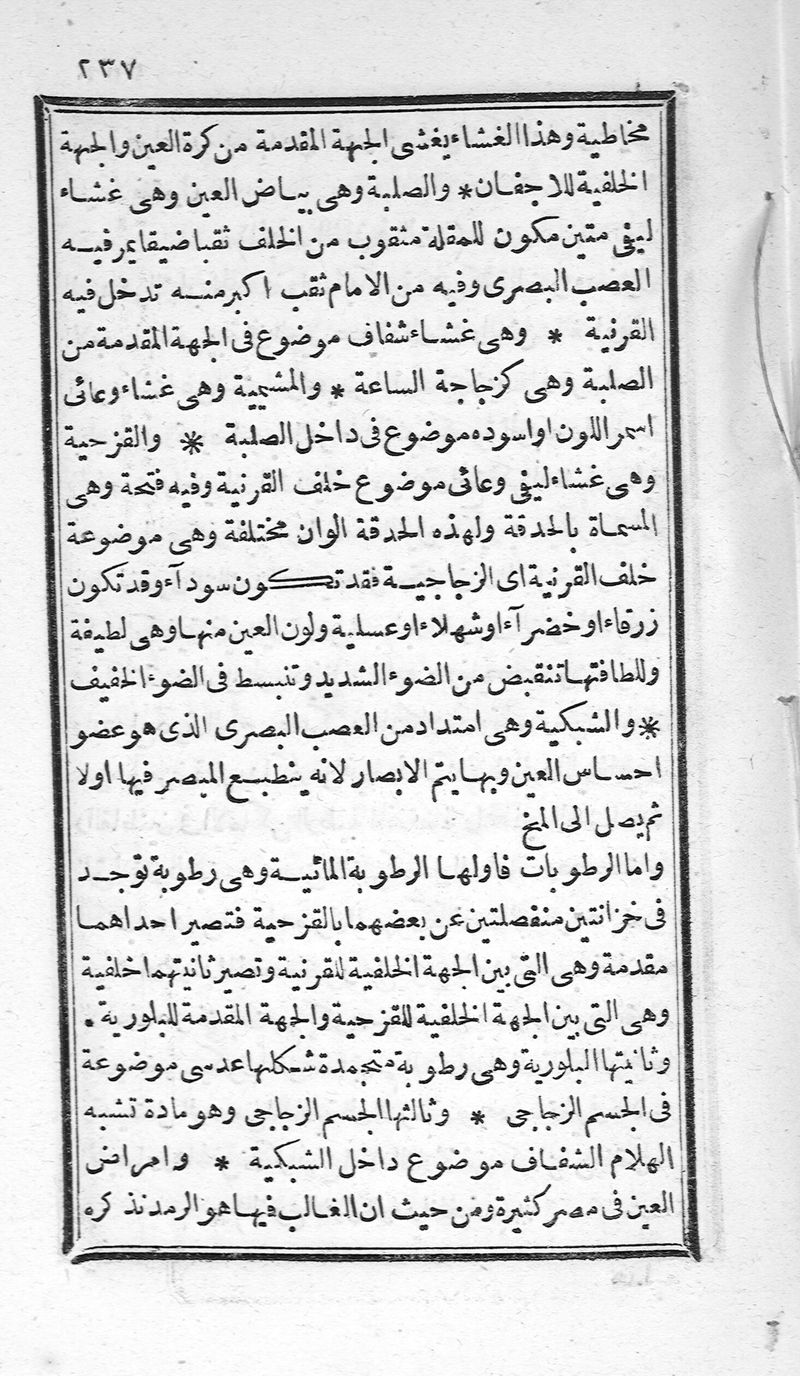 ٢٣٧
مخاطية وهذا الغشاء يغشى الجهة المقدمة من كرة العين والجهة
الخلفية للاجفان * والصلبة وهى بياض العين وهى غشاء
ليفى متين مكون للمقلة مثقوب من الخلف ثقبا ضيقا يمر فيه
العصب البصرى وفيه من الامام ثقب اكبر منه تدخل فيه
القرنية * وهى غشاء شفاف موضوع فى الجهة المقدمة من
الصلبة وهى كزجاجة الساعة * والمشيمية وهى غشاء وعائى
اسمر اللون او اسوده موضوع فى داخل الصلبة * والقزحية
وهى غشاء ليفى وعائى موضوع خلف القرنية وفيه فتحة وهى
المسماة بالحدقة ولهذه الحدقة الوان مختلفة وهى موضوعة
خلف القرنية اى الزجاجية فقد تكون سودآء وقد تكون
زرقاء او خضرآء او شهلاء او عسلية ولون العين منها وهى لطيفة
وللطافتها تنقبض من الضوء الشديد وتنبسط فى الضوء الخفيف
* والشبكية وهى امتداد من العصب البصرى الذى هو عضو
احساس العين وبها يتم الابصار لانه ينطبع المبصر فيها اولا
ثم يصل الى المخ
واما الرطوبات فاولها الرطوبة المائية وهى رطوبة توجد
فى خزانتين منفصلتين عن بعضهما بالقزحية فتصير احداهما
مقدمة وهى التى بين الجهة الخلفية للقرنية وتصير ثانيتهما خلفية
وهى التى بين الجهة الخلفية للقزحية والجهة المقدمة للبلورية .
وثانيتها البلورية وهى رطوبة متجمدة شكلها عدسى موضوعة
فى الجسم الزجاجى * وثالثها الجسم الزجاجى وهو مادة تشبه
الهلام الشفاف موضوع داخل الشبكية * وامراض
العين فى مصر كثيرة ومن حيث ان الغالب فيها هو الرمد نذكره